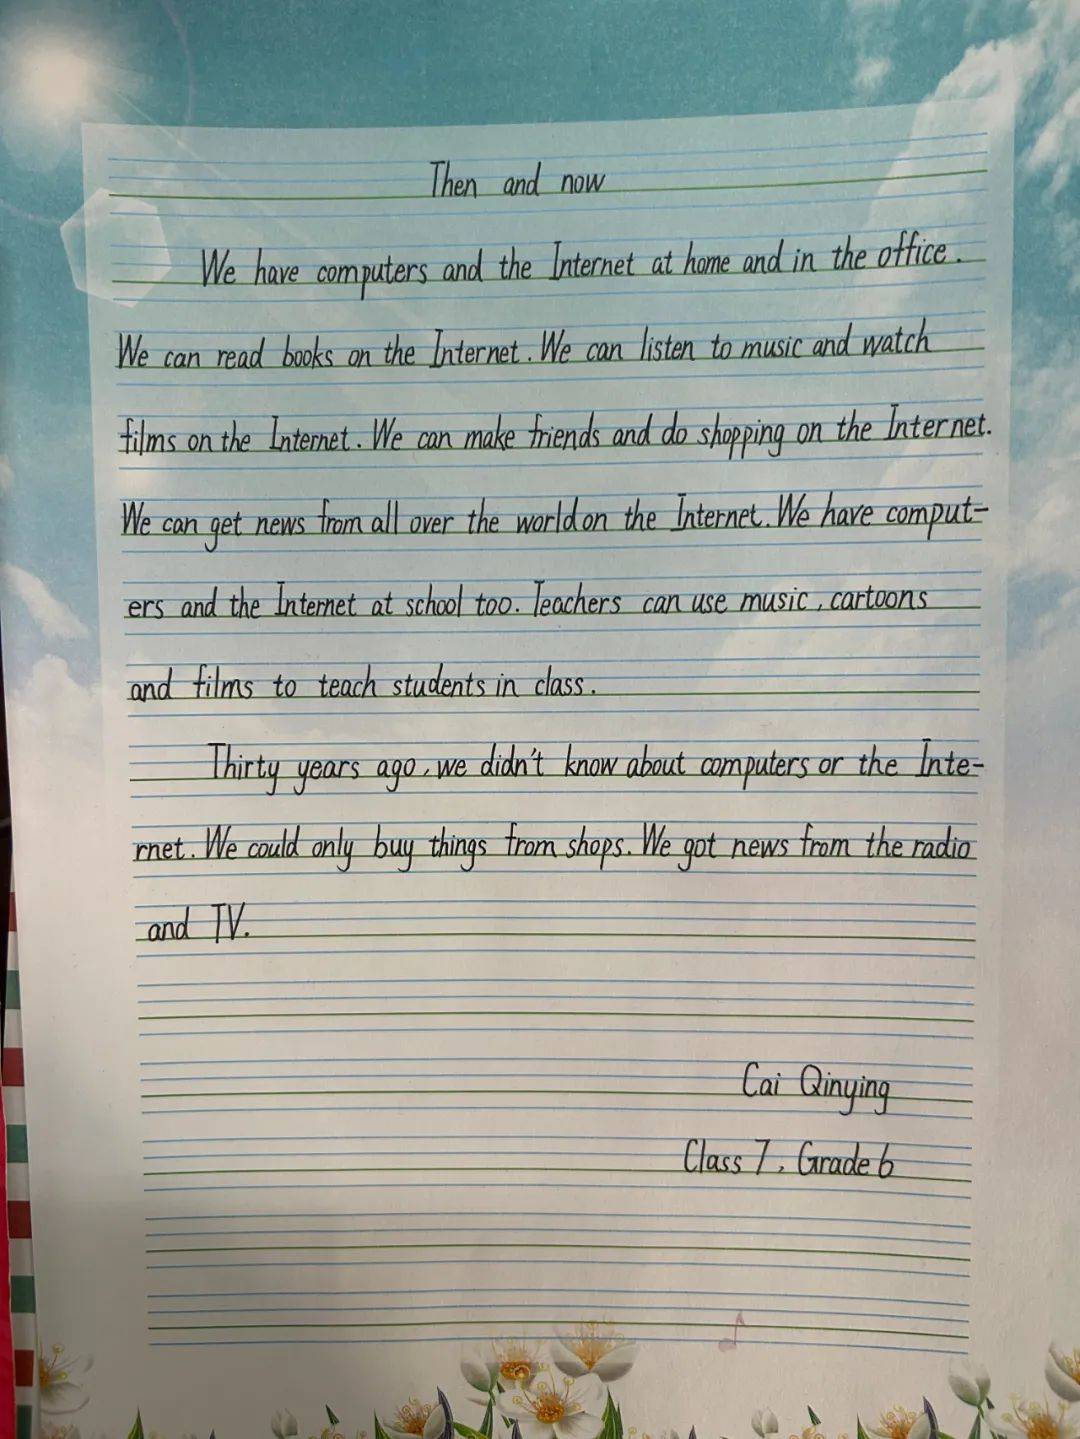 Then and now
We have computers and the Internet at home and in the office.
We can read books on the Internet. We can listen to music and watch
films on the Internet. We can make friends and do shopping on the Internet.
We can get news from all over the world on the Internet. We have comput-
ers and the Internet at school too. Teachers can use music, cartoons
and films to teach students in class.
Thirty years ago, we didn't know about computers or the Inte-
rnet. We could only buy things from shops. We got news from the radio
and TV.
Cai Qinying
Class 7, Grade 6